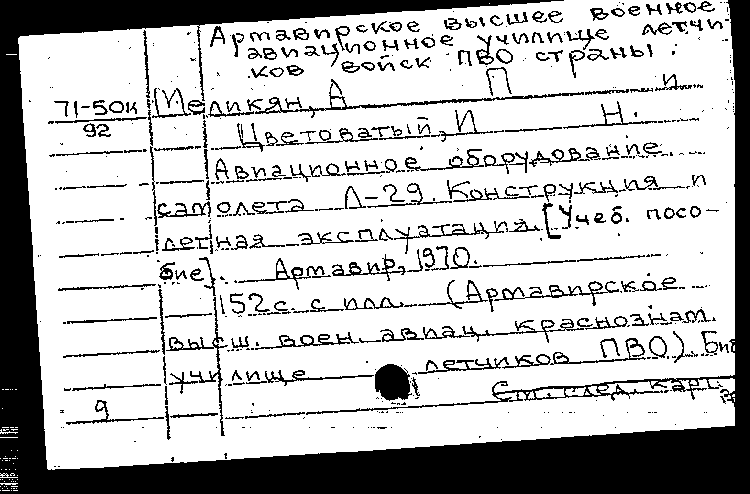 Армавирское высшее военное
авиационное училище летчи
ков войск ПВО страны.
71-50к
92
Меликян, А П и
Цветоватый, И Н.
Авиационное оборудование
самолета Л-29. Конструкция и
летная эксплуатация. [Учеб. посо-
бие]. Армавир, 1970.
152с. с илл. (Армавирское
высш. воен. авиац. краснознам.
училище летчиков ПВО). Биб
См. след. карт.
9